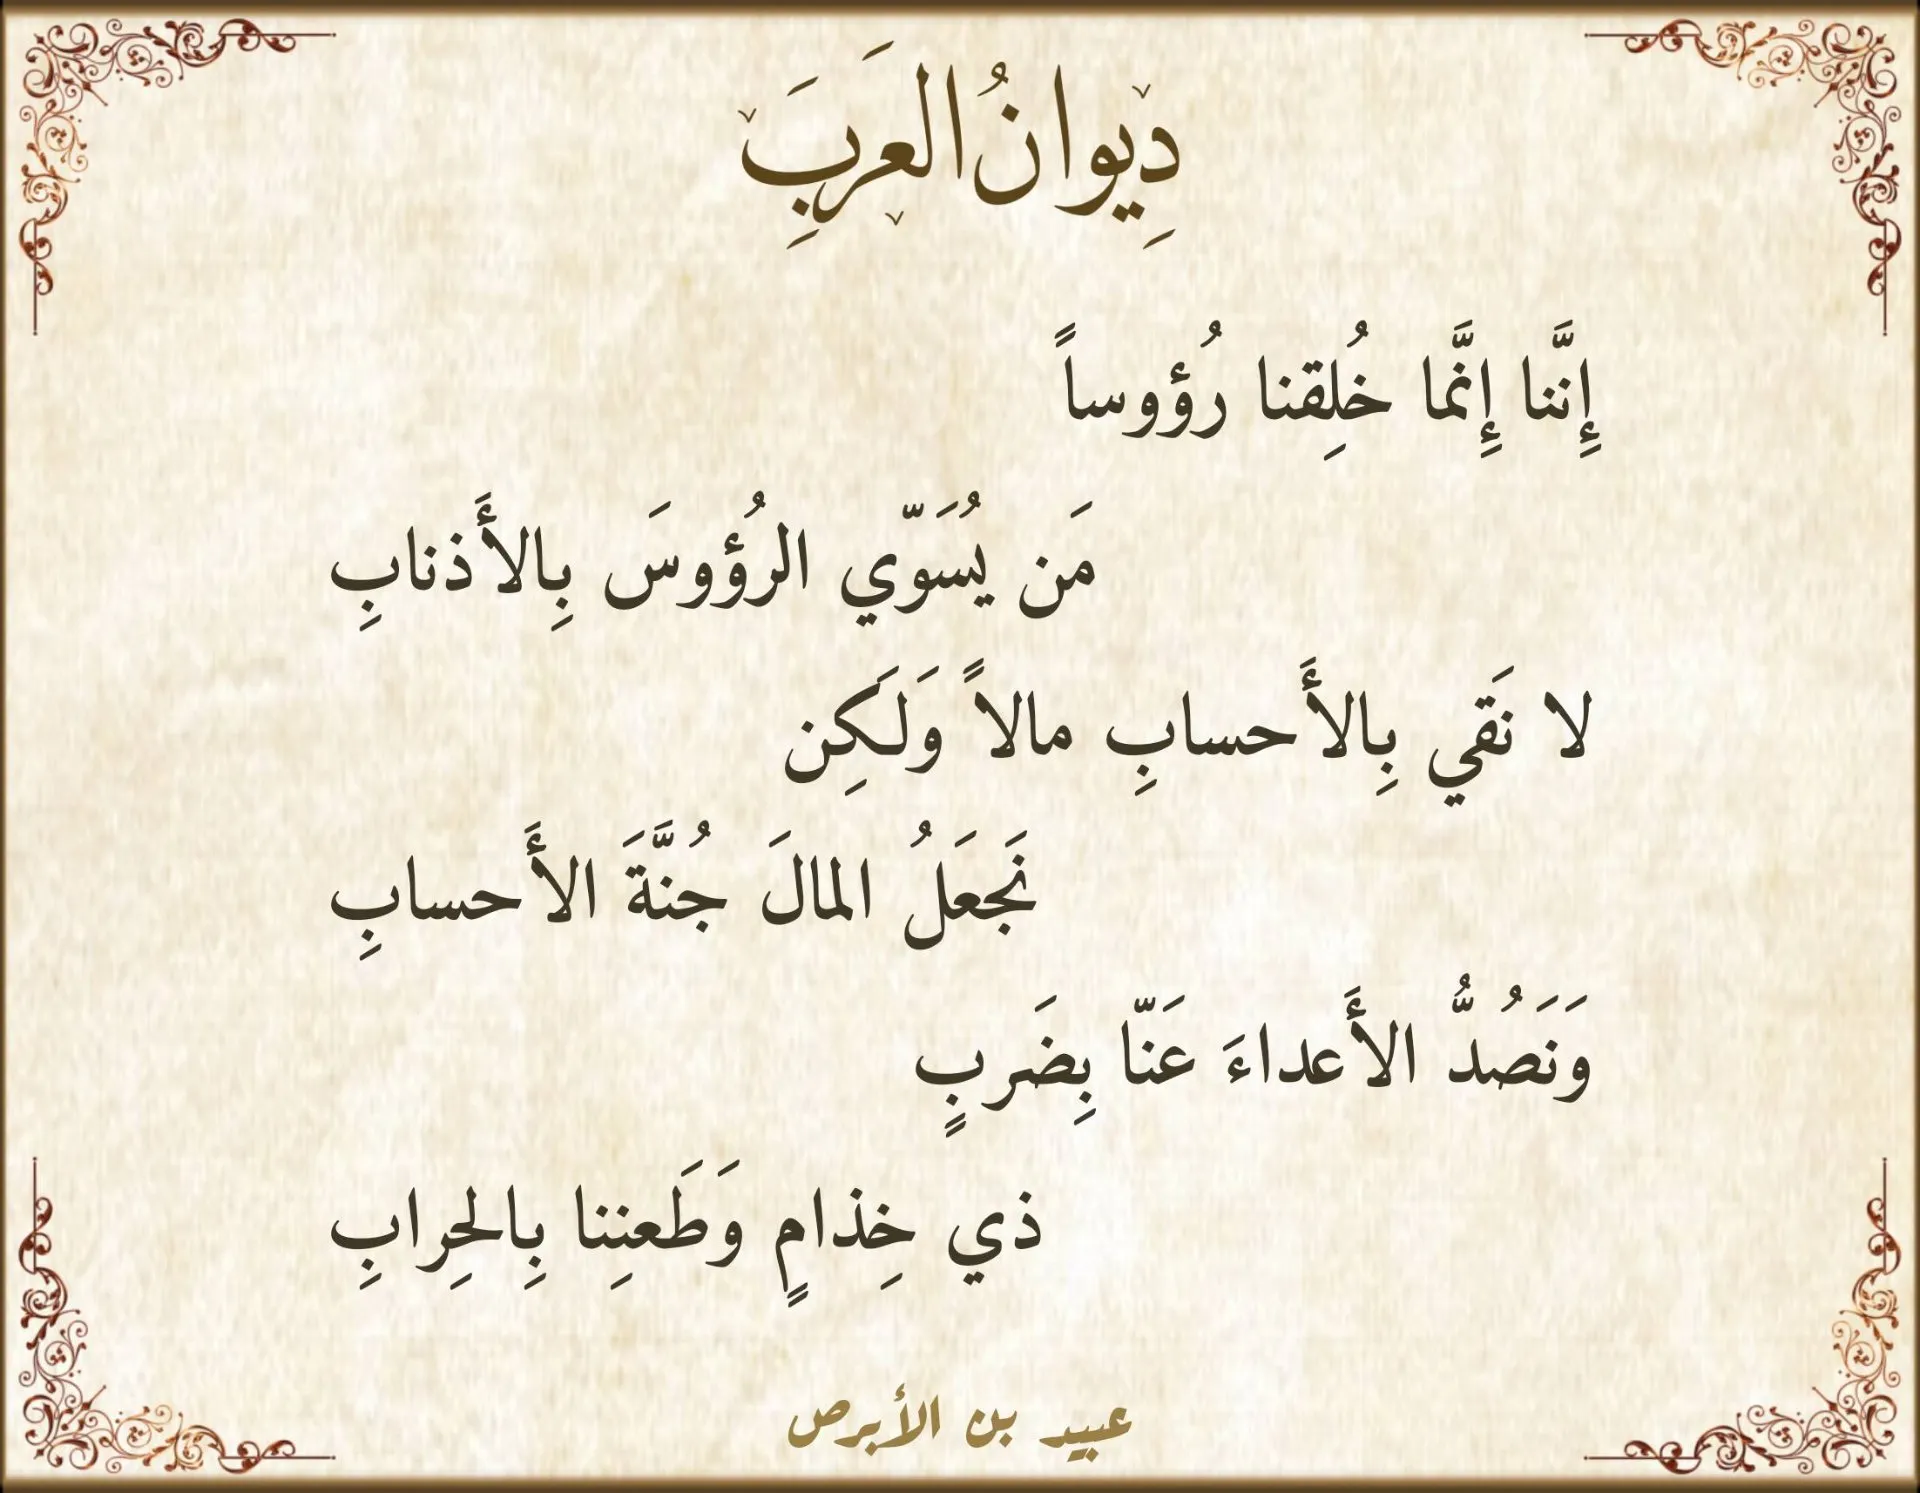 دِيوانُ العَرَبِ
إِنَّنا إِنَّما خُلِقنا رُؤوساً
مَن يُسَوّي الرُؤوسَ بِالأَذنابِ
لا نَقي بِالأَحسابِ مالاً وَلَكِن
نَجعَلُ المالَ جُنَّةَ الأَحسابِ
وَنَصُدُّ الأَعداءَ عَنّا بِضَربٍ
ذي خِذامٍ وَطَعنِنا بِالحِرابِ
عبيد بن الأبرص